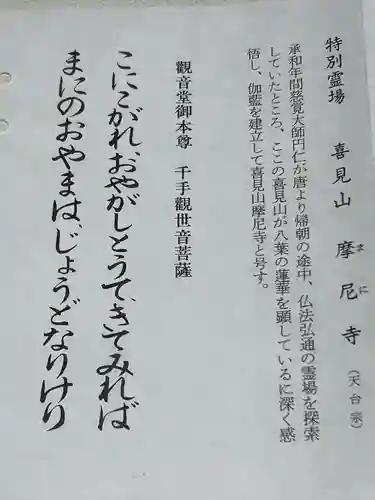 特別霊場　喜見山　摩尼寺（天台宗）
まに
承和年間慈覚大師円仁が唐より帰朝の途中、仏法弘通の霊場を探索
していたところ、ここの喜見山が八葉の蓮華を顕しているに深く感
悟し、伽藍を建立して喜見山摩尼寺と号す。
觀音堂御本尊　千手觀世音菩薩
こにこがれ、おやがしとうて、きてみれば
まにのおやまはじょうどなりけり